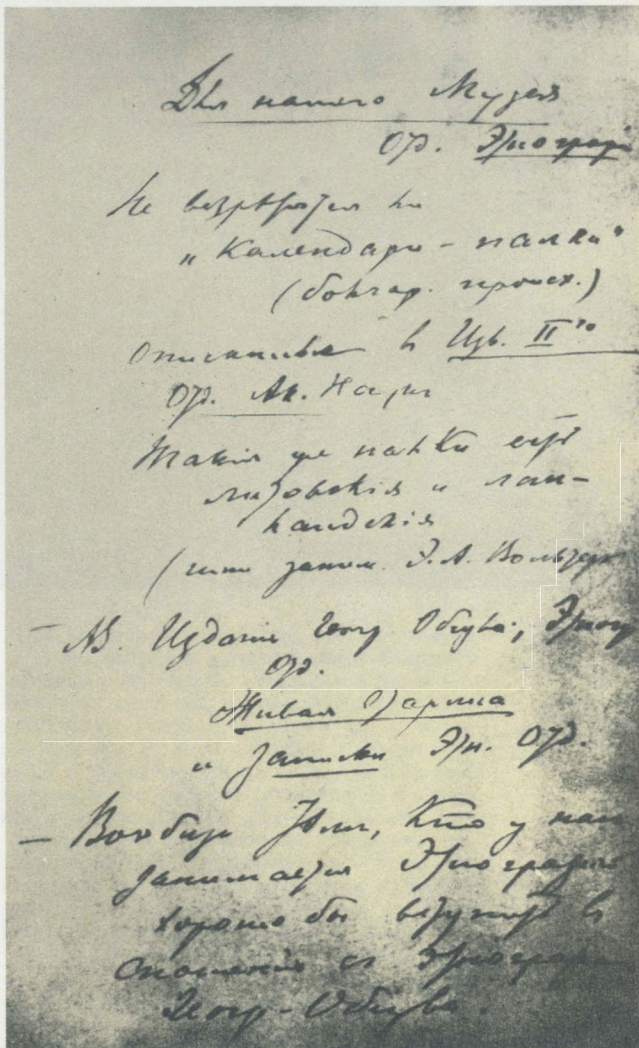 Для нашего Музея
Отд. Этнограф
Не встретятся ли
„Календари-палки“
(болгар. происх.)
Описанные в Изв. II го
Отд. Ак. Наук
Такія же палки есть
литовскія и лап-
ландскія
(ими заним. Э. А. Вольтер
— NB. Изданіе Геогр Общва; Этногр
Отд.
Живая Старина
и Записки Этн. Отд.
— Вообще тем, кто у нас
занимается Этнографіей
хорошо бы вступить в
сношенія с Этнограф
Геогр-Общва.